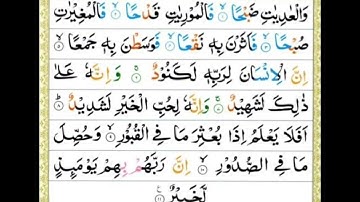 وَالْعٰدِيٰتِ ضَبْحًا ۙ فَالْمُوْرِيٰتِ قَدْحًا ۙ فَالْمُغِيْرٰتِ
صُبْحًا ۙ فَاَثَرْنَ بِهٖ نَقْعًا ۙ فَوَسَطْنَ بِهٖ جَمْعًا ۙ
اِنَّ الْاِنْسَانَ لِرَبِّهٖ لَكَنُوْدٌ ۚ وَاِنَّهٗ عَلٰى
ذٰلِكَ لَشَهِيْدٌ ۚ وَاِنَّهٗ لِحُبِّ الْخَيْرِ لَشَدِيْدٌ ؕ
اَفَلَا يَعْلَمُ اِذَا بُعْثِرَ مَا فِى الْقُبُوْرِ ۙ وَحُصِّلَ
مَا فِى الصُّدُوْرِ ۙ اِنَّ رَبَّهُمْ بِهِمْ يَوْمَئِذٍ
لَّخَبِيْرٌ